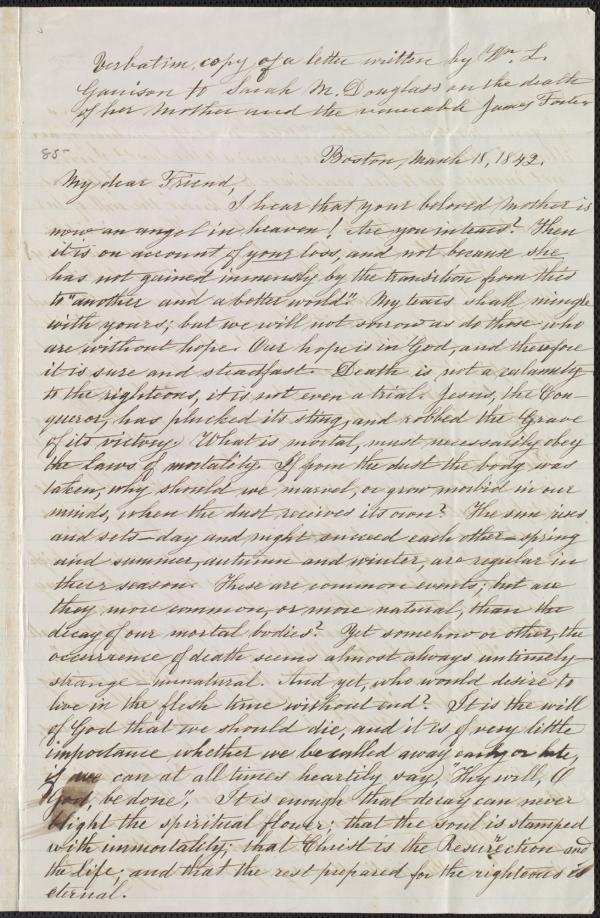 Verbatim copy of a letter written by Wm. L.
Garrison to Sarah M. Douglass on the death
of her Mother and the venerable James Forten
85
Boston, March 18, 1842.
My dear Friend,
I hear that your beloved Mother is
now an angel in heaven! Are you in tears? Then
it is on account of your loss, and not because she
has not gained immensely by the transition from this
to "another and a better world". My tears shall mingle
with yours; but we will not sorrow as do those who
are without hope. Our hope is in God, and therefore
it is sure and steadfast. Death is not a calamity
to the righteous, it is not even a trial. Jesus, the Con-
queror, has plucked its sting, and robbed the Grave
of its victory. What is mortal, must necessarily obey
the laws of mortality. If from the dust the body was
taken, why should we marvel, or grow morbid in our
minds, when the dust receives its own? The sun rises
and sets—day and night succeed each other—spring
and summer, autumn and winter, are regular in
their season. These are common events; but are
they more common, or more natural, than the
decay of our mortal bodies? Yet somehow or other, the
occurrence of death seems almost always untimely—
strange—unnatural. And yet, who would desire to
live in the flesh time without end? It is the will
of God that we should die, and it is of very little
importance whether we be called away early or late,
if we can at all times heartily say, "Thy will, O
God, be done", It is enough that decay can never
blight the spiritual flower; that the soul is stamped
with immortality; that Christ is the Resurrection and
the life; and that the rest prepared for the righteous is
eternal.